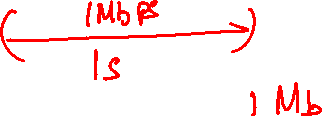 1Mbps
1s
1 Mb